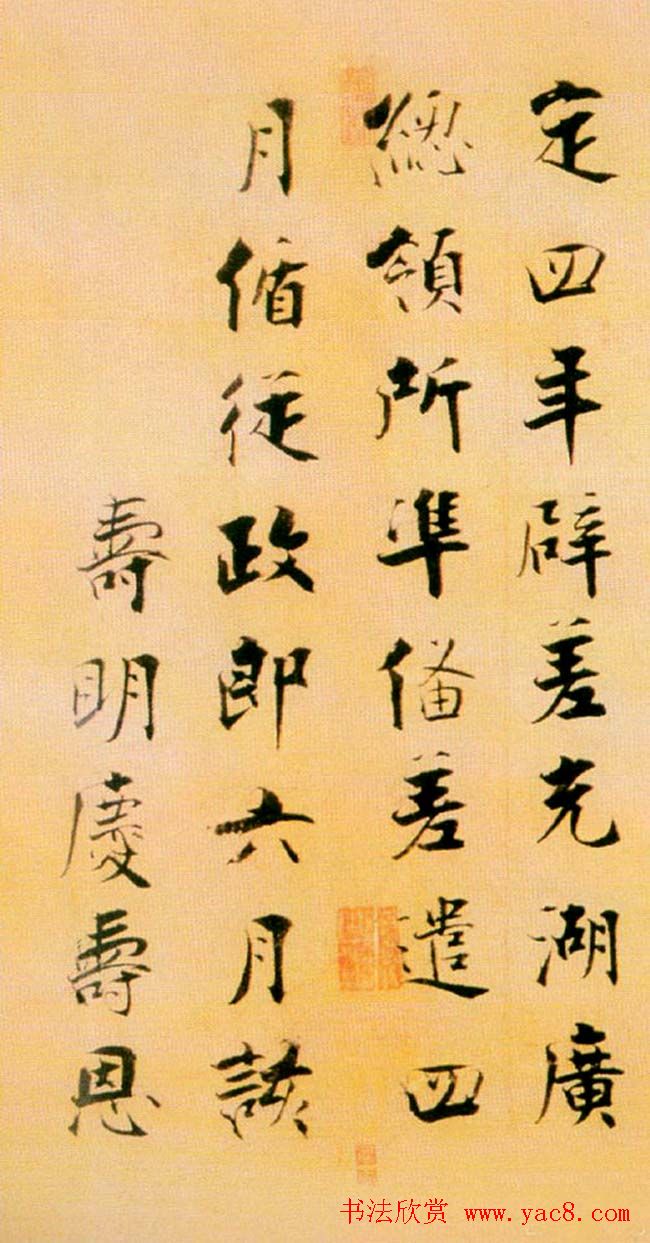 定四年辟差充湖廣
緫領所準俻差遣四
月循從政郎六月該
壽明慶壽恩
书法欣赏 www.yac8.com